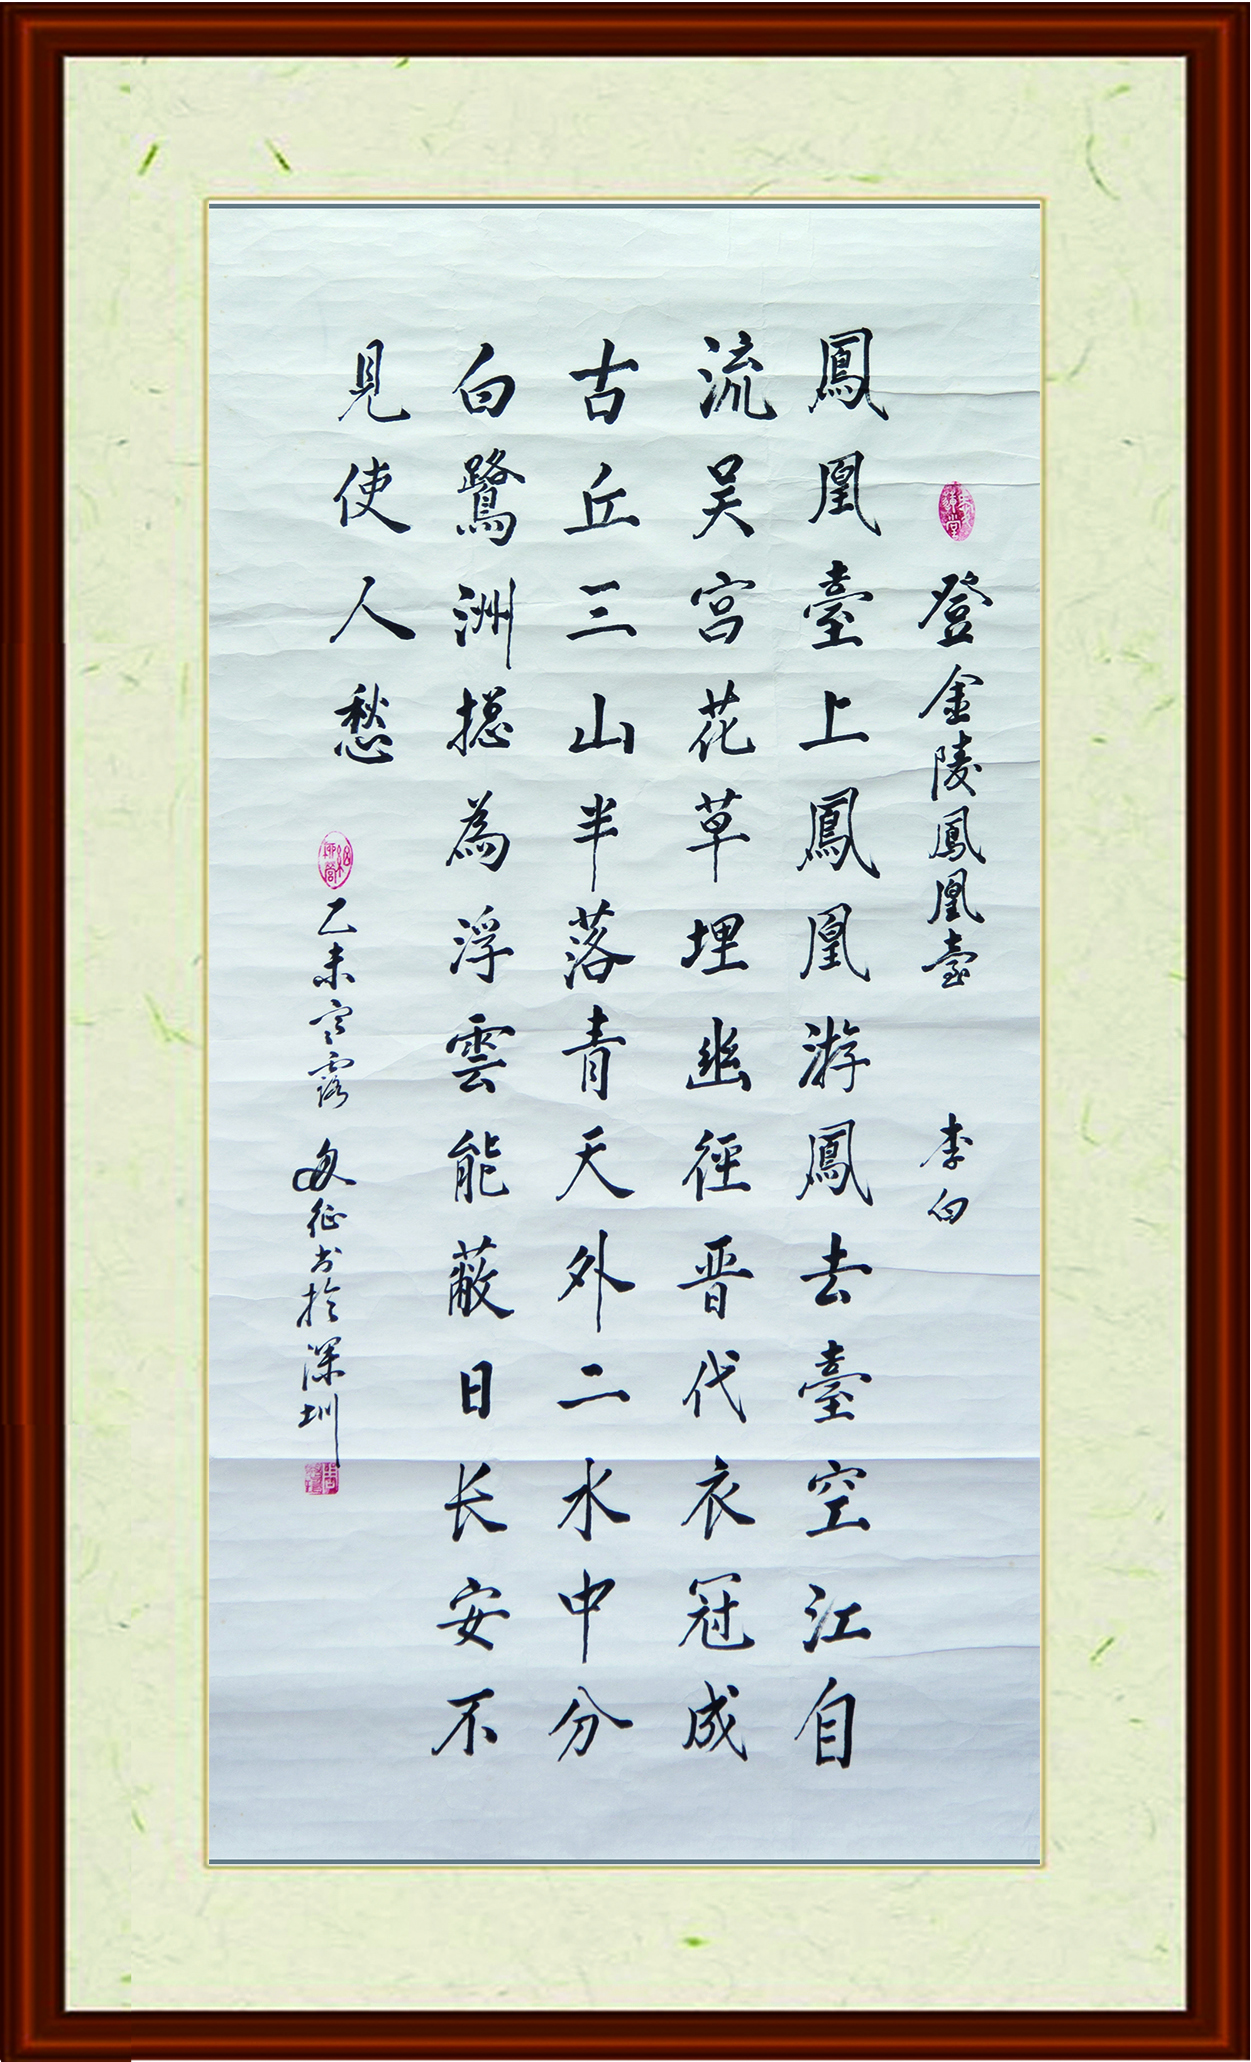 登金陵鳳凰臺 李白
鳳凰臺上鳳凰游鳳去臺空江自
流吴宫花草埋幽徑晋代衣冠成
古丘三山半落青天外二水中分
白鷺洲摠為浮雲能蔽日长安不
見使人愁
乙未寒露 征书於深圳